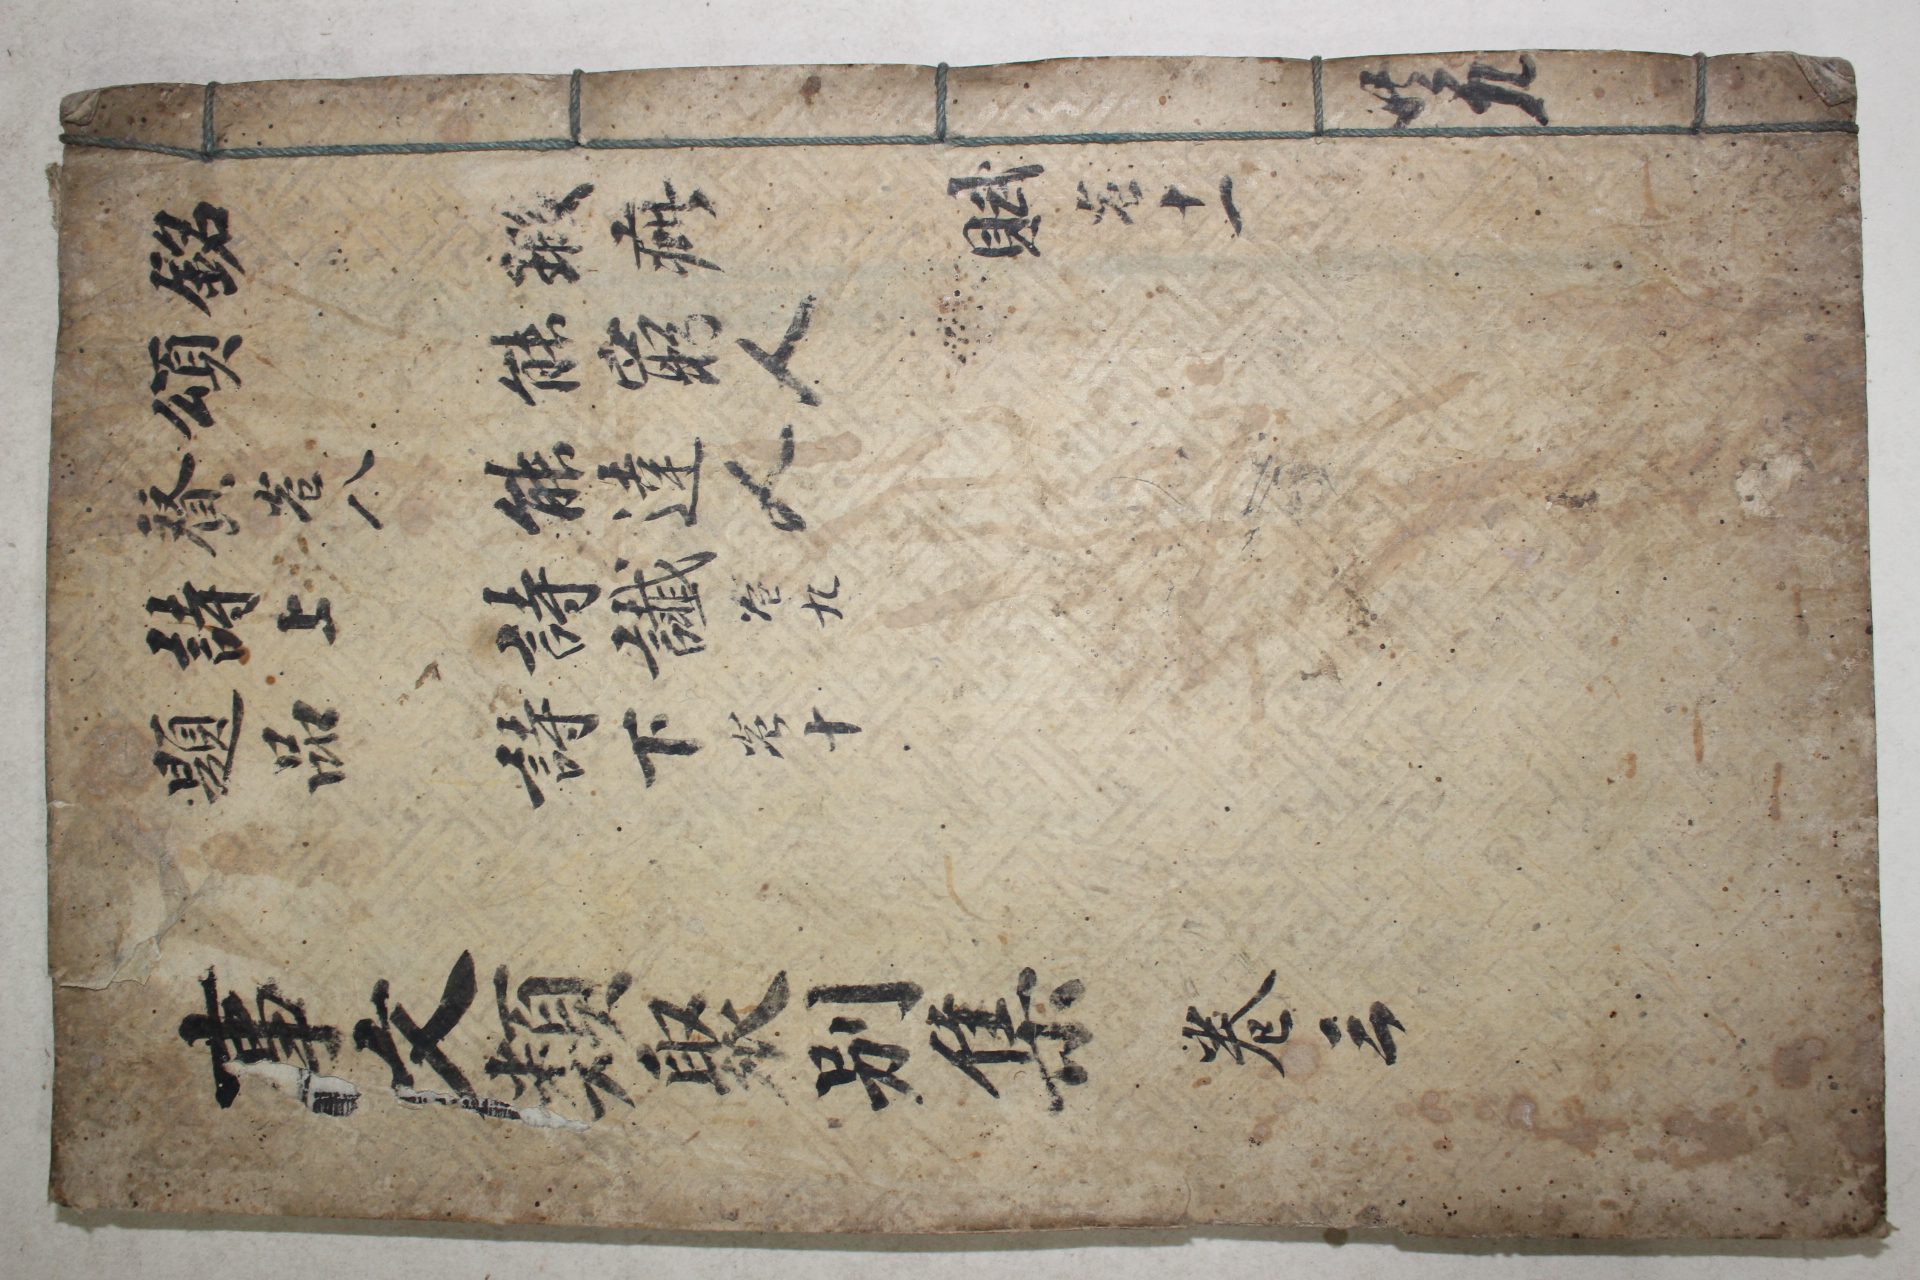 銘
頌
賛 卷八
詩上
題品
瑕疵
能窮人
能達人
詩讖 卷九
詩下 卷十
賦 卷十一
事文類聚別集 卷三